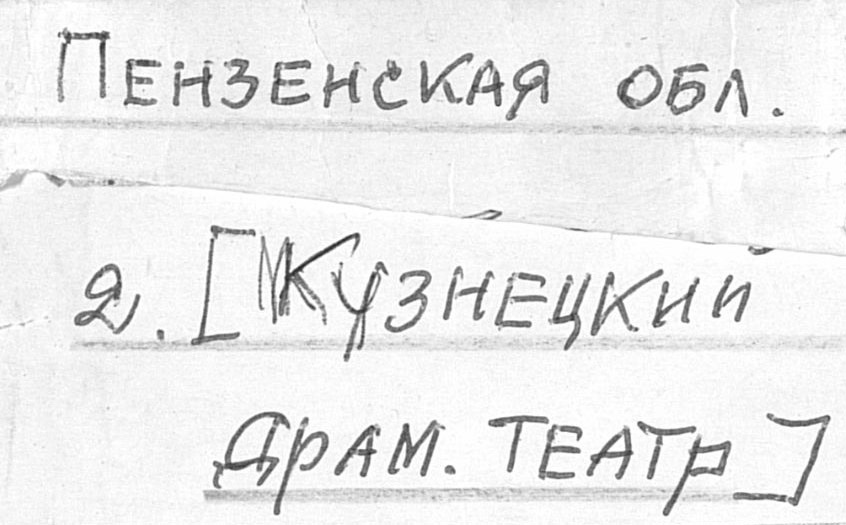 Пензенская обл.
2. [Кузнецкий
драм. театр]